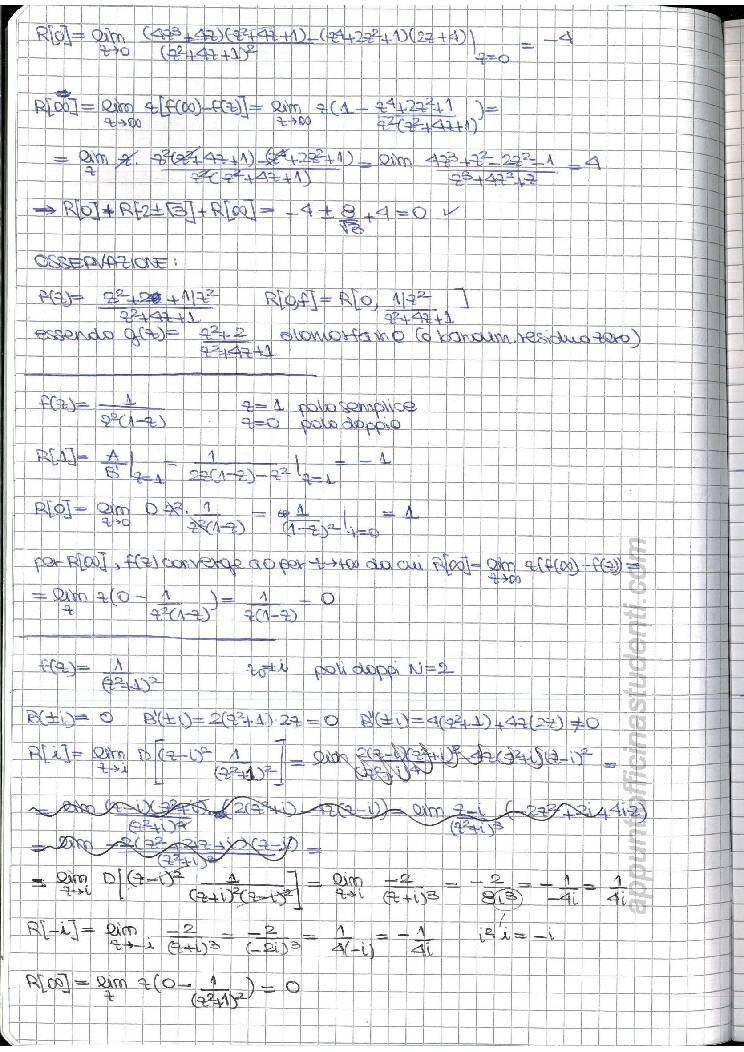 R[0] = lim z→0 (4z³+4z)(z²+4z+1)-(z⁴+2z²+1)(2z+4) / (z²+4z+1)² |z=0 = -4
R[∞] = lim z→∞ z[f(∞)-f(z)] = lim z→∞ z(1 - z⁴+2z²+1 / z²(z²+4z+1)) =
= lim z z · z²(z²+4z+1)-(z⁴+2z²+1) / z²(z²+4z+1) = lim 4z³+z²-2z²-1 / z³+4z²+z = 4
→ R[0]+R[-2±√3]+R[∞] = -4 ± 8/√3 + 4 = 0 ✓
OSSERVAZIONE:
f(z) = z²+2+1/z² / z²+4z+1 R[0,f] = R[0, 1/z² / z²+4z+1]
essendo g(z) = z²+2 / z²+4z+1 olomorfa in 0 (e banalm. residuo zero)
f(z) = 1 / z²(1-z) z=1 polo semplice
z=0 polo doppio
R[1] = A/B' |z=1 = 1 / 2z(1-z)-z² |z=1 = -1
R[0] = lim z→0 D z² · 1 / z²(1-z) = 1 / (1-z)² |z=0 = 1
per R[∞], f(z) converge a 0 per z→+∞ da cui R[∞] = lim z→∞ z(f(∞)-f(z)) =
= lim z z(0 - 1 / z²(1-z)) = 1 / z(1-z) = 0
f(z) = 1 / (z²+1)² z₀=±i poli doppi N=2
B(±i) = 0 B'(±i) = 2(z²+1)·2z = 0 B''(±i) = 4(z²+1)+4z(2z) ≠ 0
R[i] = lim z→i D[(z-i)² 1 / (z²+1)²] = lim 2(z-i)(z²+i)² - 4z(z²+i)(z-i)² / (z²+i)⁴ =
= lim z→i D[(z-i)² 1 / (z+i)²(z-i)²] = lim z→i -2 / (z+i)³ = -2 / 8i³ = -1 / -4i = 1 / 4i
R[-i] = lim z→-i -2 / (z+i)³ = -2 / (-2i)³ = 1 / 4(-i) = -1 / 4i i²i = -i
R[∞] = lim z z(0 - 1 / (z²+1)²) = 0
appuntiofficinastudenti.com